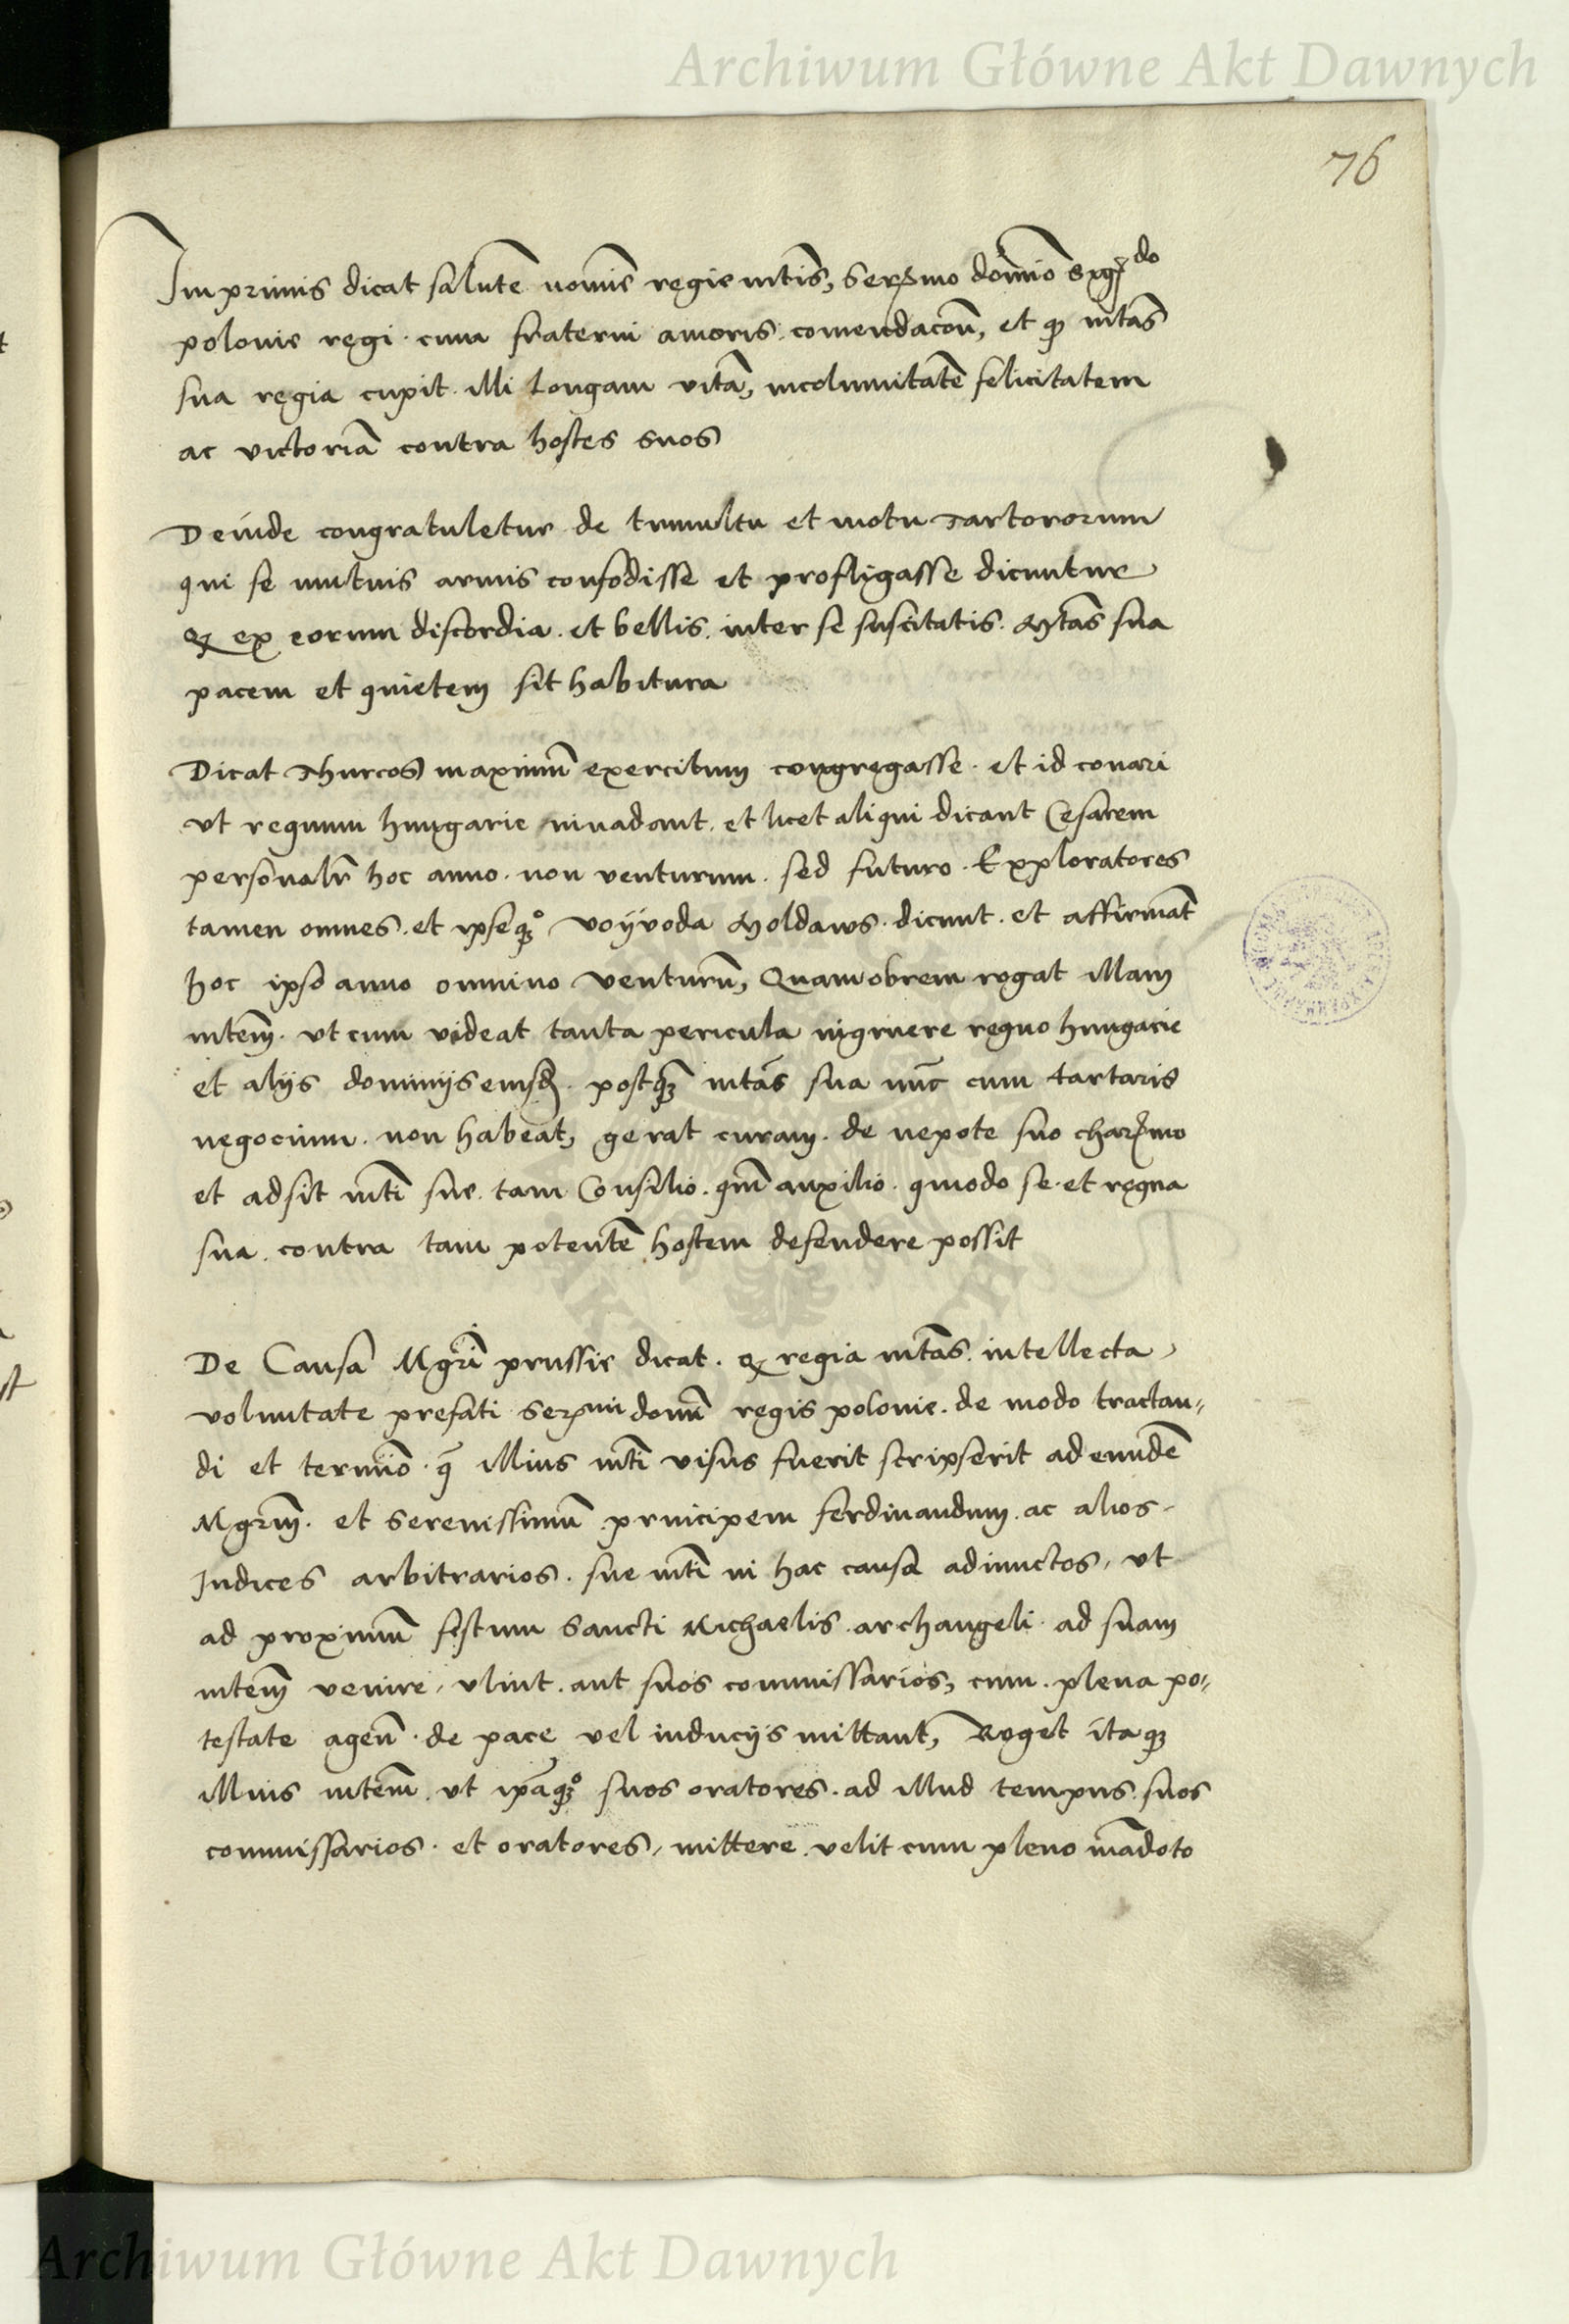 Archiwum Główne Akt Dawnych
76
Imprimis dicat salutē nomīe regie mtis, Serᵐmo domīo Sigᵈᵒ
polonie regi cum fraterni amoris comendacoē, et qz mtas
sua regia cupit illi longam vitā, incolumitatē felicitatem
ac victoriā contra hostes suos
Deinde congratuletur de tumultu et motu Tartarorum
qui se mutuis armis confodisse et profligasse dicuntur
qz ex eorum discordia et bellis inter se suscitatis Mtas sua
pacem et quietem sit habitura
Dicat Thurcos maximū exercitum congregasse et id conari
vt regnum hungarie invadant et licet aliqui dicant Cesarem
personalr̄ hoc anno non venturum sed futuro Exploratores
tamen omnes et ipseqz° voÿvoda Moldaws dicunt et affirmāt
hoc ipso anno omnino venturū, Quamobrem rogat illam
mtem vt cum videat tanta pericula ingruere regno hungarie
et alijs dominijs eiusd postqz mtas sua nūc cum tartaris
negocium non habeat, gerat curam de nepote suo charᵐmo
et adsit mti sue tam Consilio qm̄ auxilio quodo se et regna
sua contra tam potentē hostem defendere possit
De Causa Mgrī prussie dicat qz regia mtas intellecta
voluntate prefati Serᵐⁱ domī regis polonie de modo tractan„
di et termīo q illius mti visus fuerit scripserit ad eundē
Mgrm̄ et Serenissimū principem ferdinandum ac alios
Iudices arbitrarios sue mti in hac causa adiunctos, vt
ad proximū festum Sancti Michaelis archangeli ad suam
mtem venire vlint aut suos commissarios, cum plena po„
testate agen̄ de pace vel inducijs mittant, Roget itaqz
illius mtem vt ipaqz° suos oratores ad illud tempus suos
commissarios et oratores, mittere velit cum pleno mādato
Archiwum Główne Akt Dawnych